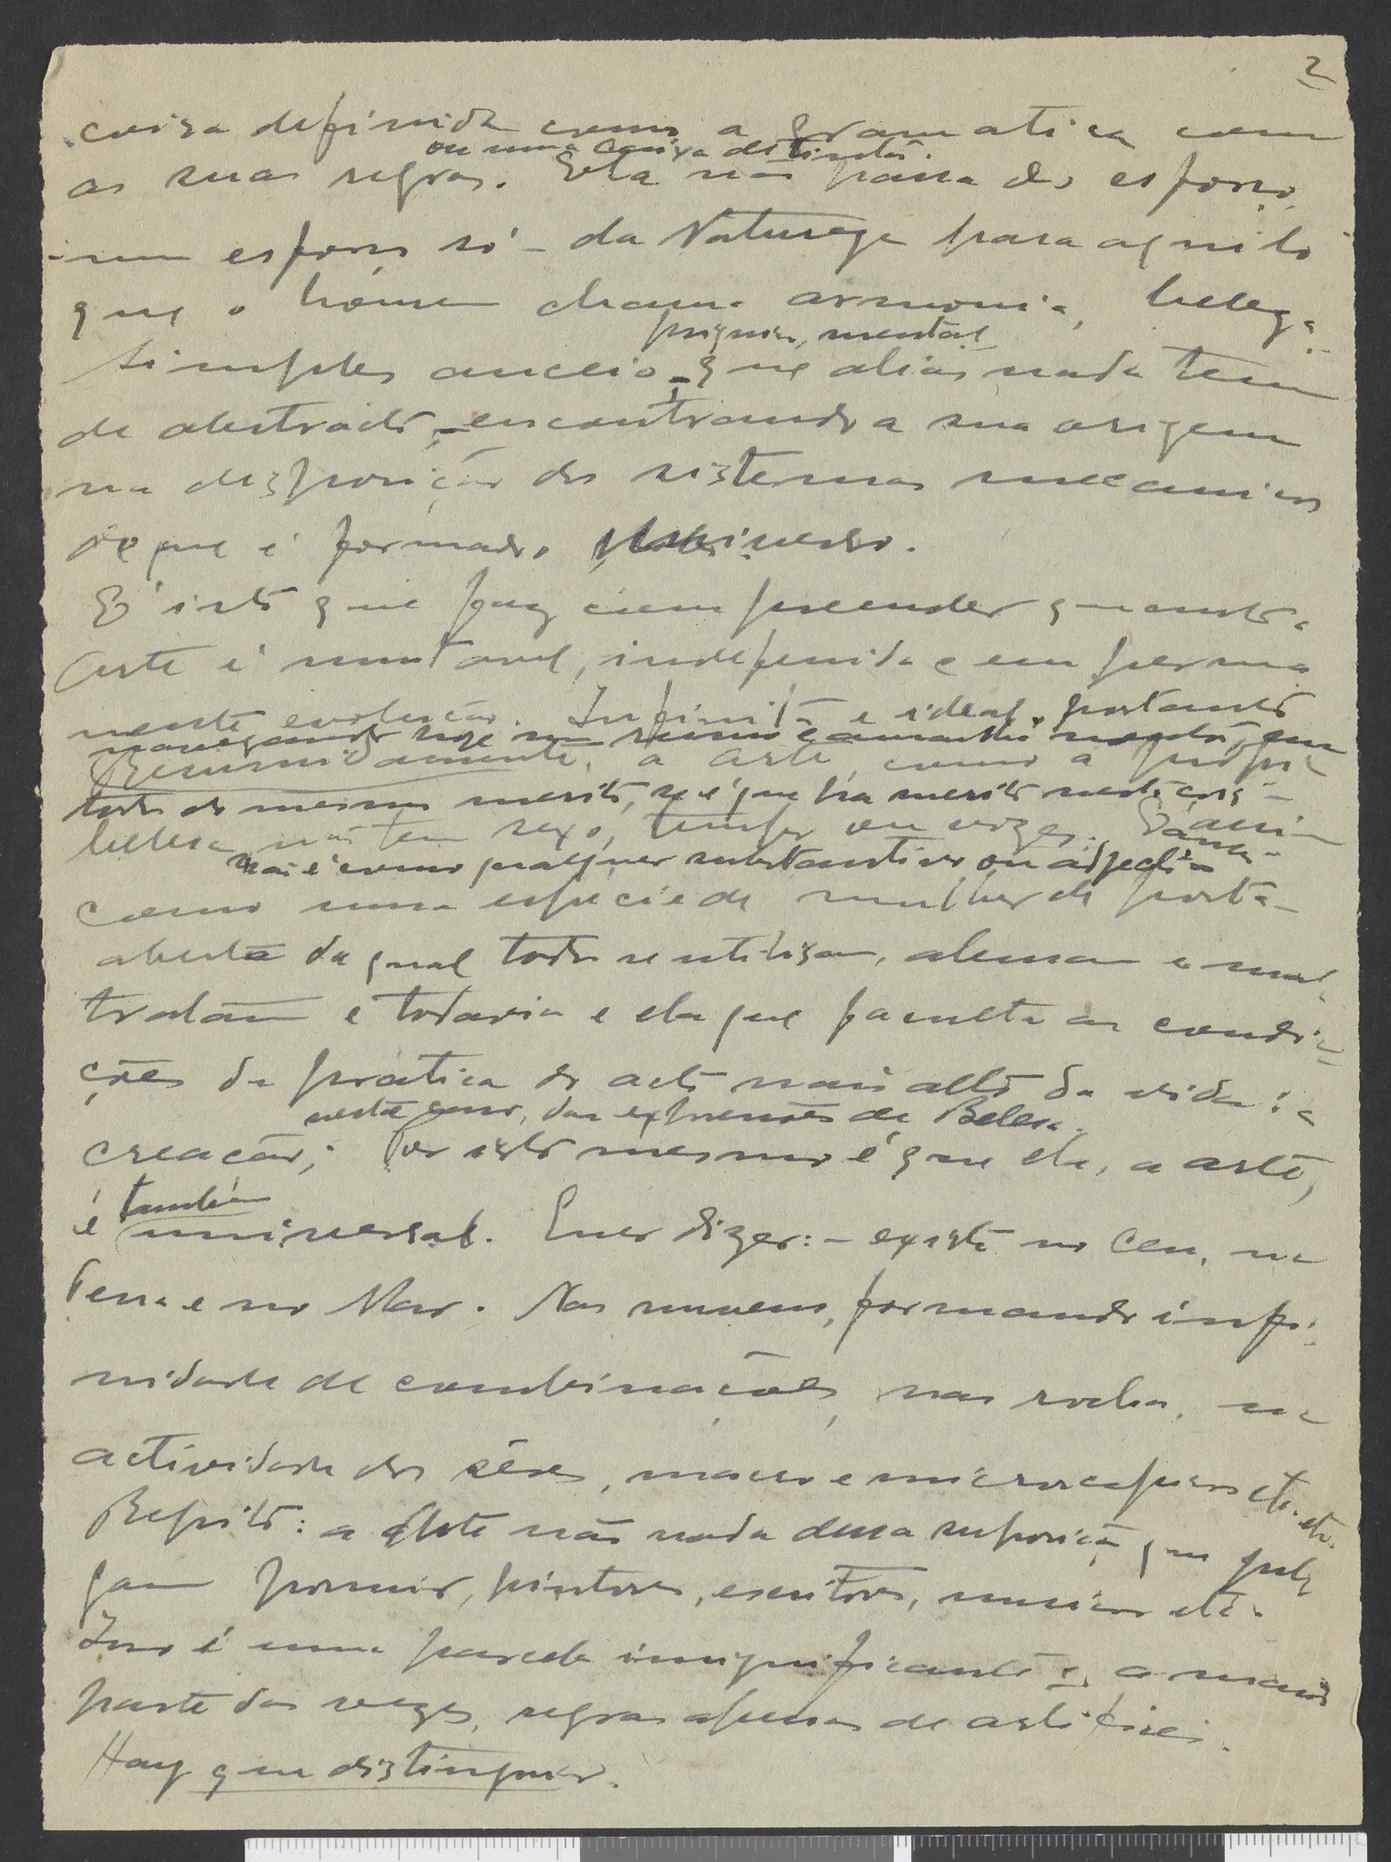 2
coisa definida como a gramatica com
ou uma coisa distinta.
as suas regras. Ela não passa do esforço,
- um esforço só - da Natureza para aquilo
que o homem chama armonia, beleza.
psiquico, mental
Simples anceio, que aliás nada tem
de abstracto, - encontrando a sua origem
na disposição dos sistemas mecanicos
de que é formado o universo.
E' isto que faz compreender quanto a
Arte é mutavel, indefinida e em perma
nente evolução. Infinita e ideal, portanto
Resumidamente, a arte, como a propria
todo do mesmo merito, se é que ha merito nesta
beleza não tem sexo, tempo ou vozes. E assim
não é como qualquer substantivo ou adjectivo
como uma especie de mulher de porta
aberta da qual todos se utilisam, e mal
tratam e todavia é ela que faculta as condi
ções da pratica do acto mais alto da vida: a
neste caso, das expressões de Beleza.
creação; Por isto mesmo é que ela, a arte,
é também
universal. Quer dizer: - existe no Ceu, na
Terra e no Mar. Nas nuvens, formando infi
nidade de combinações, nas rochas, na
actividade dos sêres, macro e microscopicos etc. etc.
Repito: a Arte não nada dessa suposição que jul
gam possuir, pintores, escritores, musicos etc.
Isso é uma parcela insignificante e, a maior
parte das vezes, regras apenas de artificio.
Hay que distinguir.